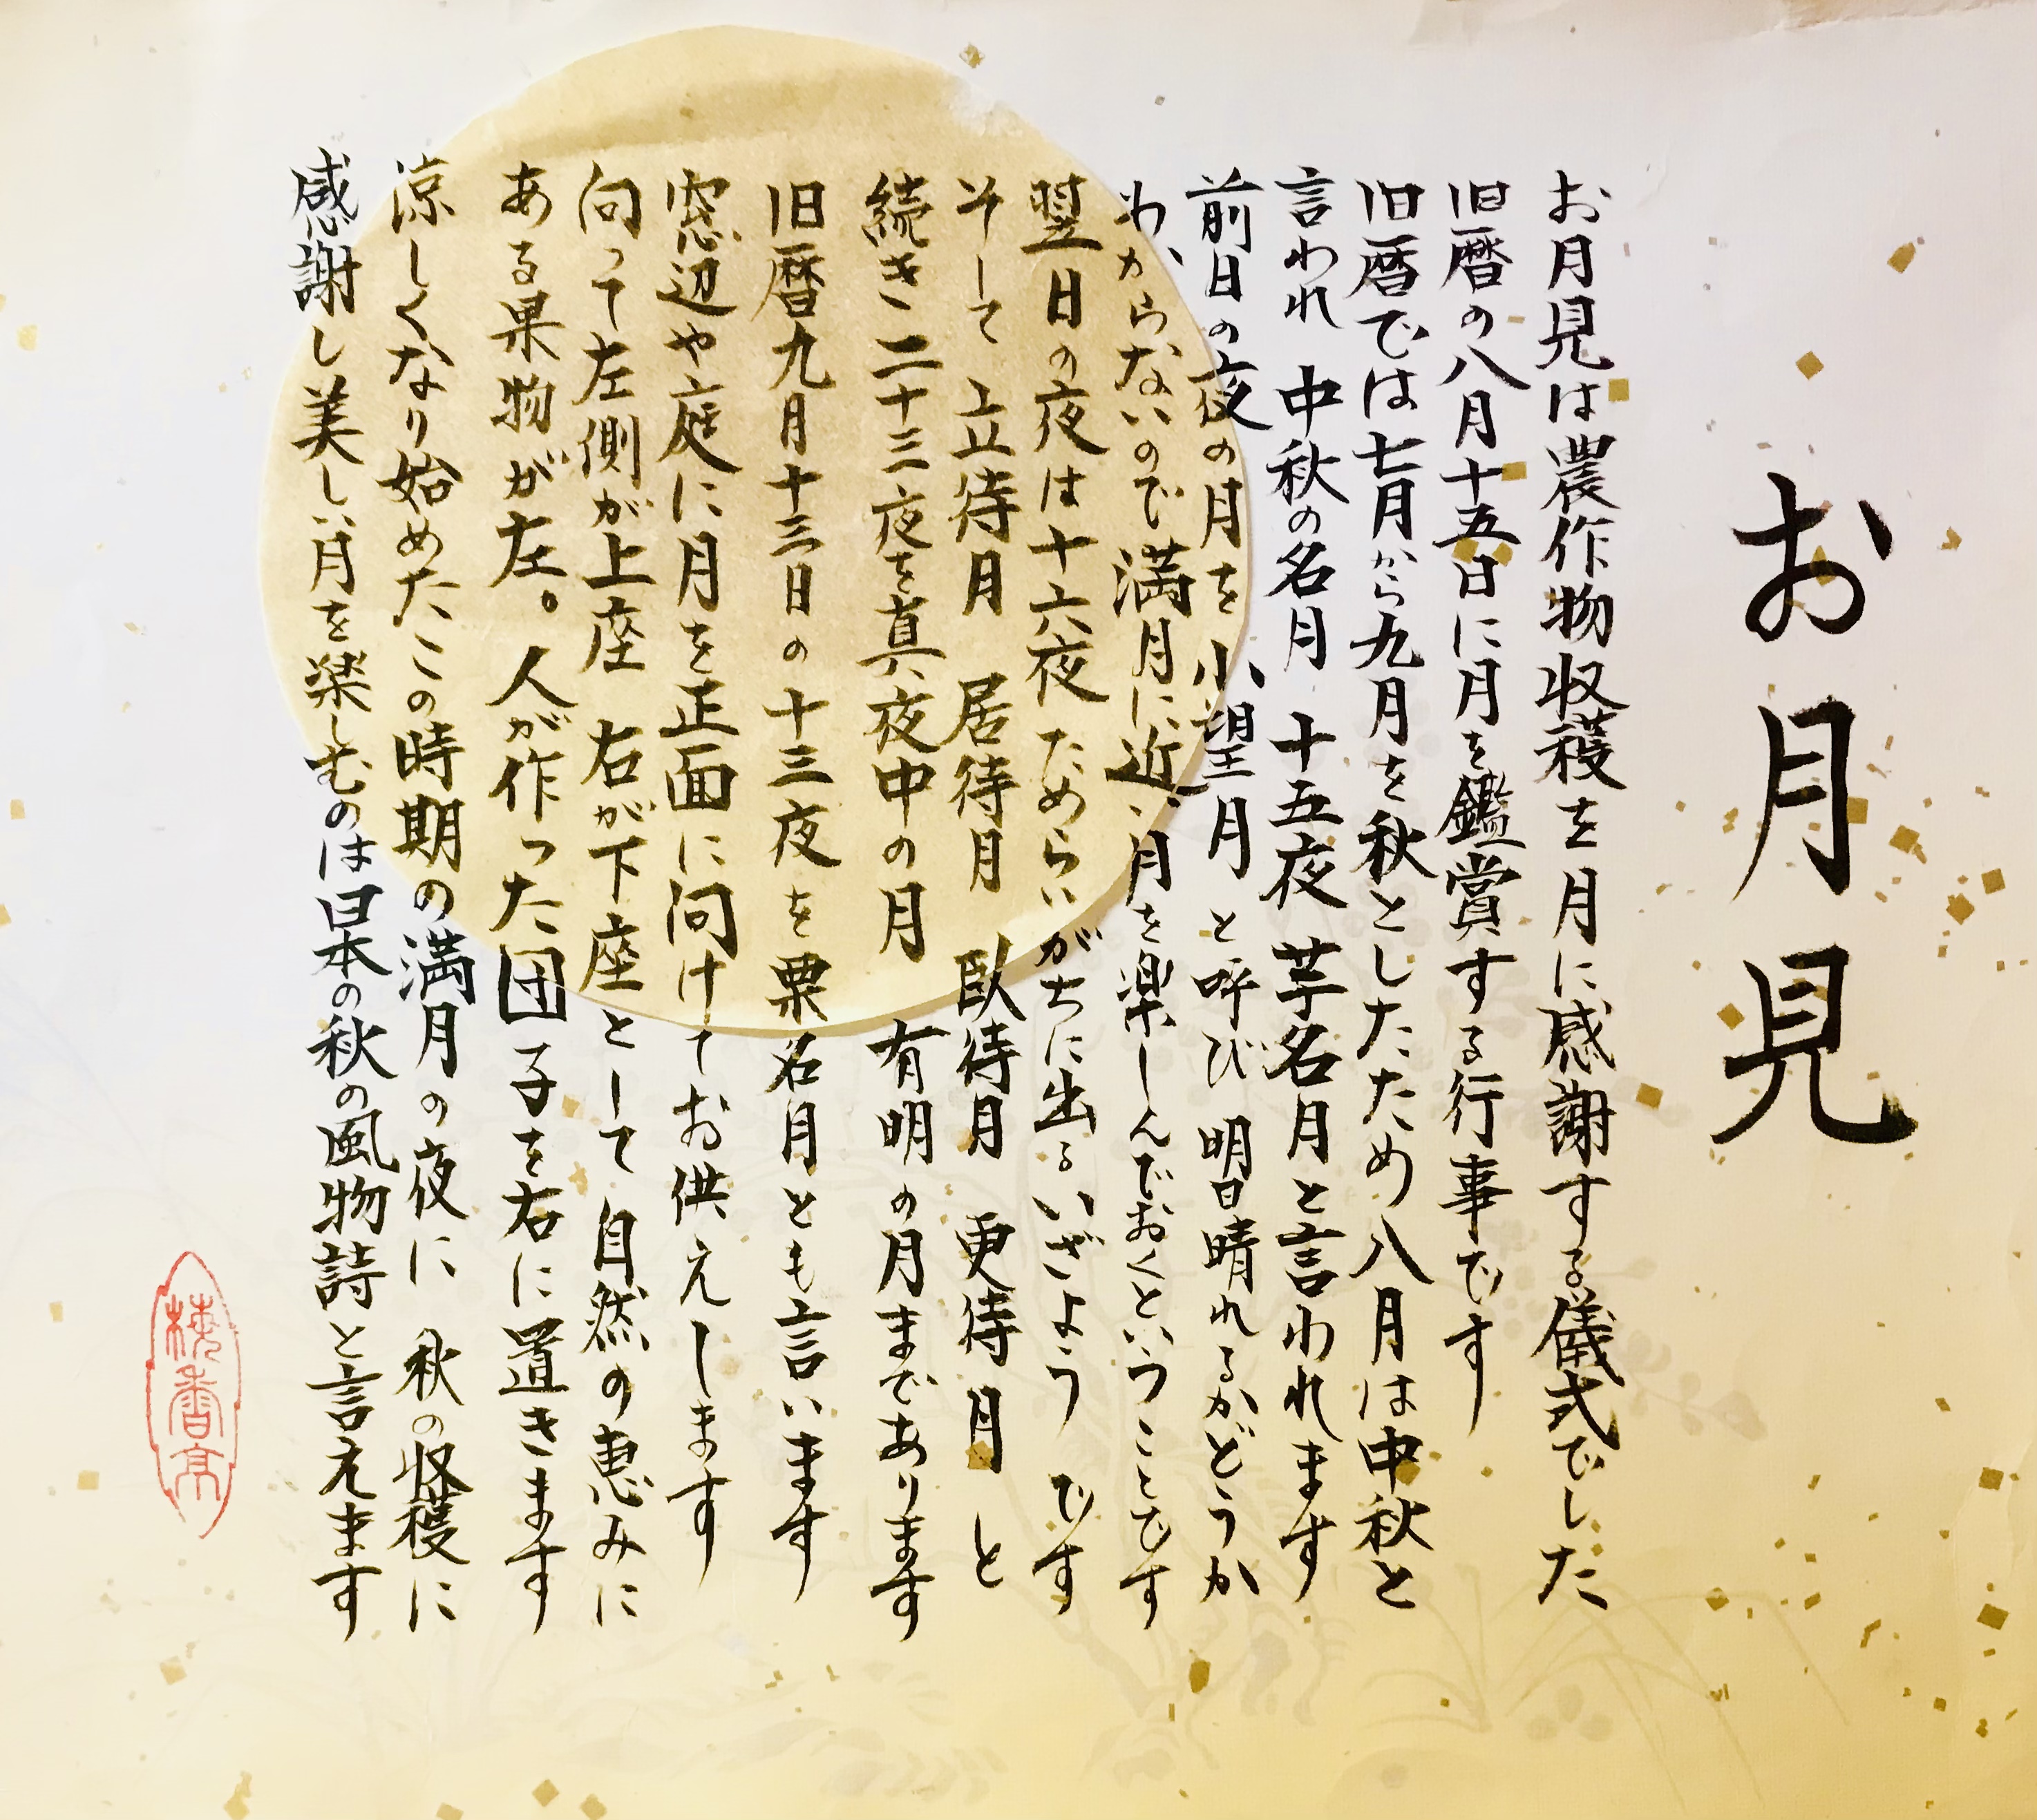 お月見
お月見は農作物収穫を月に感謝する儀式でした
旧暦の八月十五日に月を鑑賞する行事です
旧暦では七月から九月を秋としたため八月は中秋と
言われ 中秋の名月 十五夜 芋名月と言われます
前日の夜の月を小望月 と呼び 明日晴れるかどうか
わからないので満月に近い月を楽しんでおくということです
翌日の夜は十六夜 ためらいがちに出る いざよう です
そして 立待月 居待月 臥待月 更待月 と
続き 二十三夜を真夜中の月 有明の月まであります
旧暦九月十三日の十三夜を栗名月とも言います
窓辺や庭に月を正面に向けてお供えします
向って左側が上座 右が下座として 自然の恵みに
ある果物が左。人が作った団子を右に置きます
涼しくなり始めたこの時期の満月の夜に 秋の収穫に
感謝し美しい月を楽しむのは日本の秋の風物詩と言えます
梅香亭